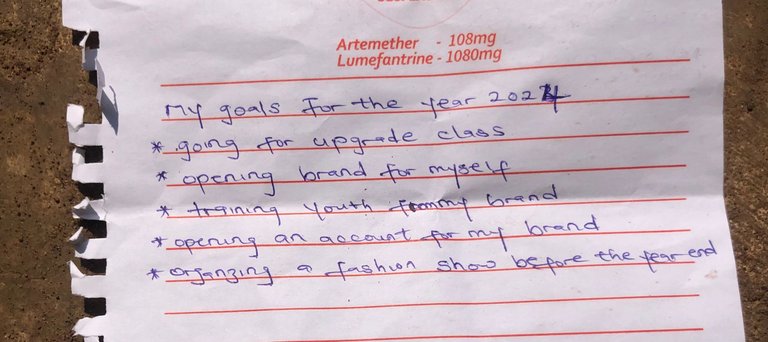 Artemether - 108mg
Lumefantrine - 1080mg
My goals for the year 2024
* going for upgrade class
* opening brand for myself
* training youth from my brand
* opening an account for my brand
* organzing a fashion show before the year end